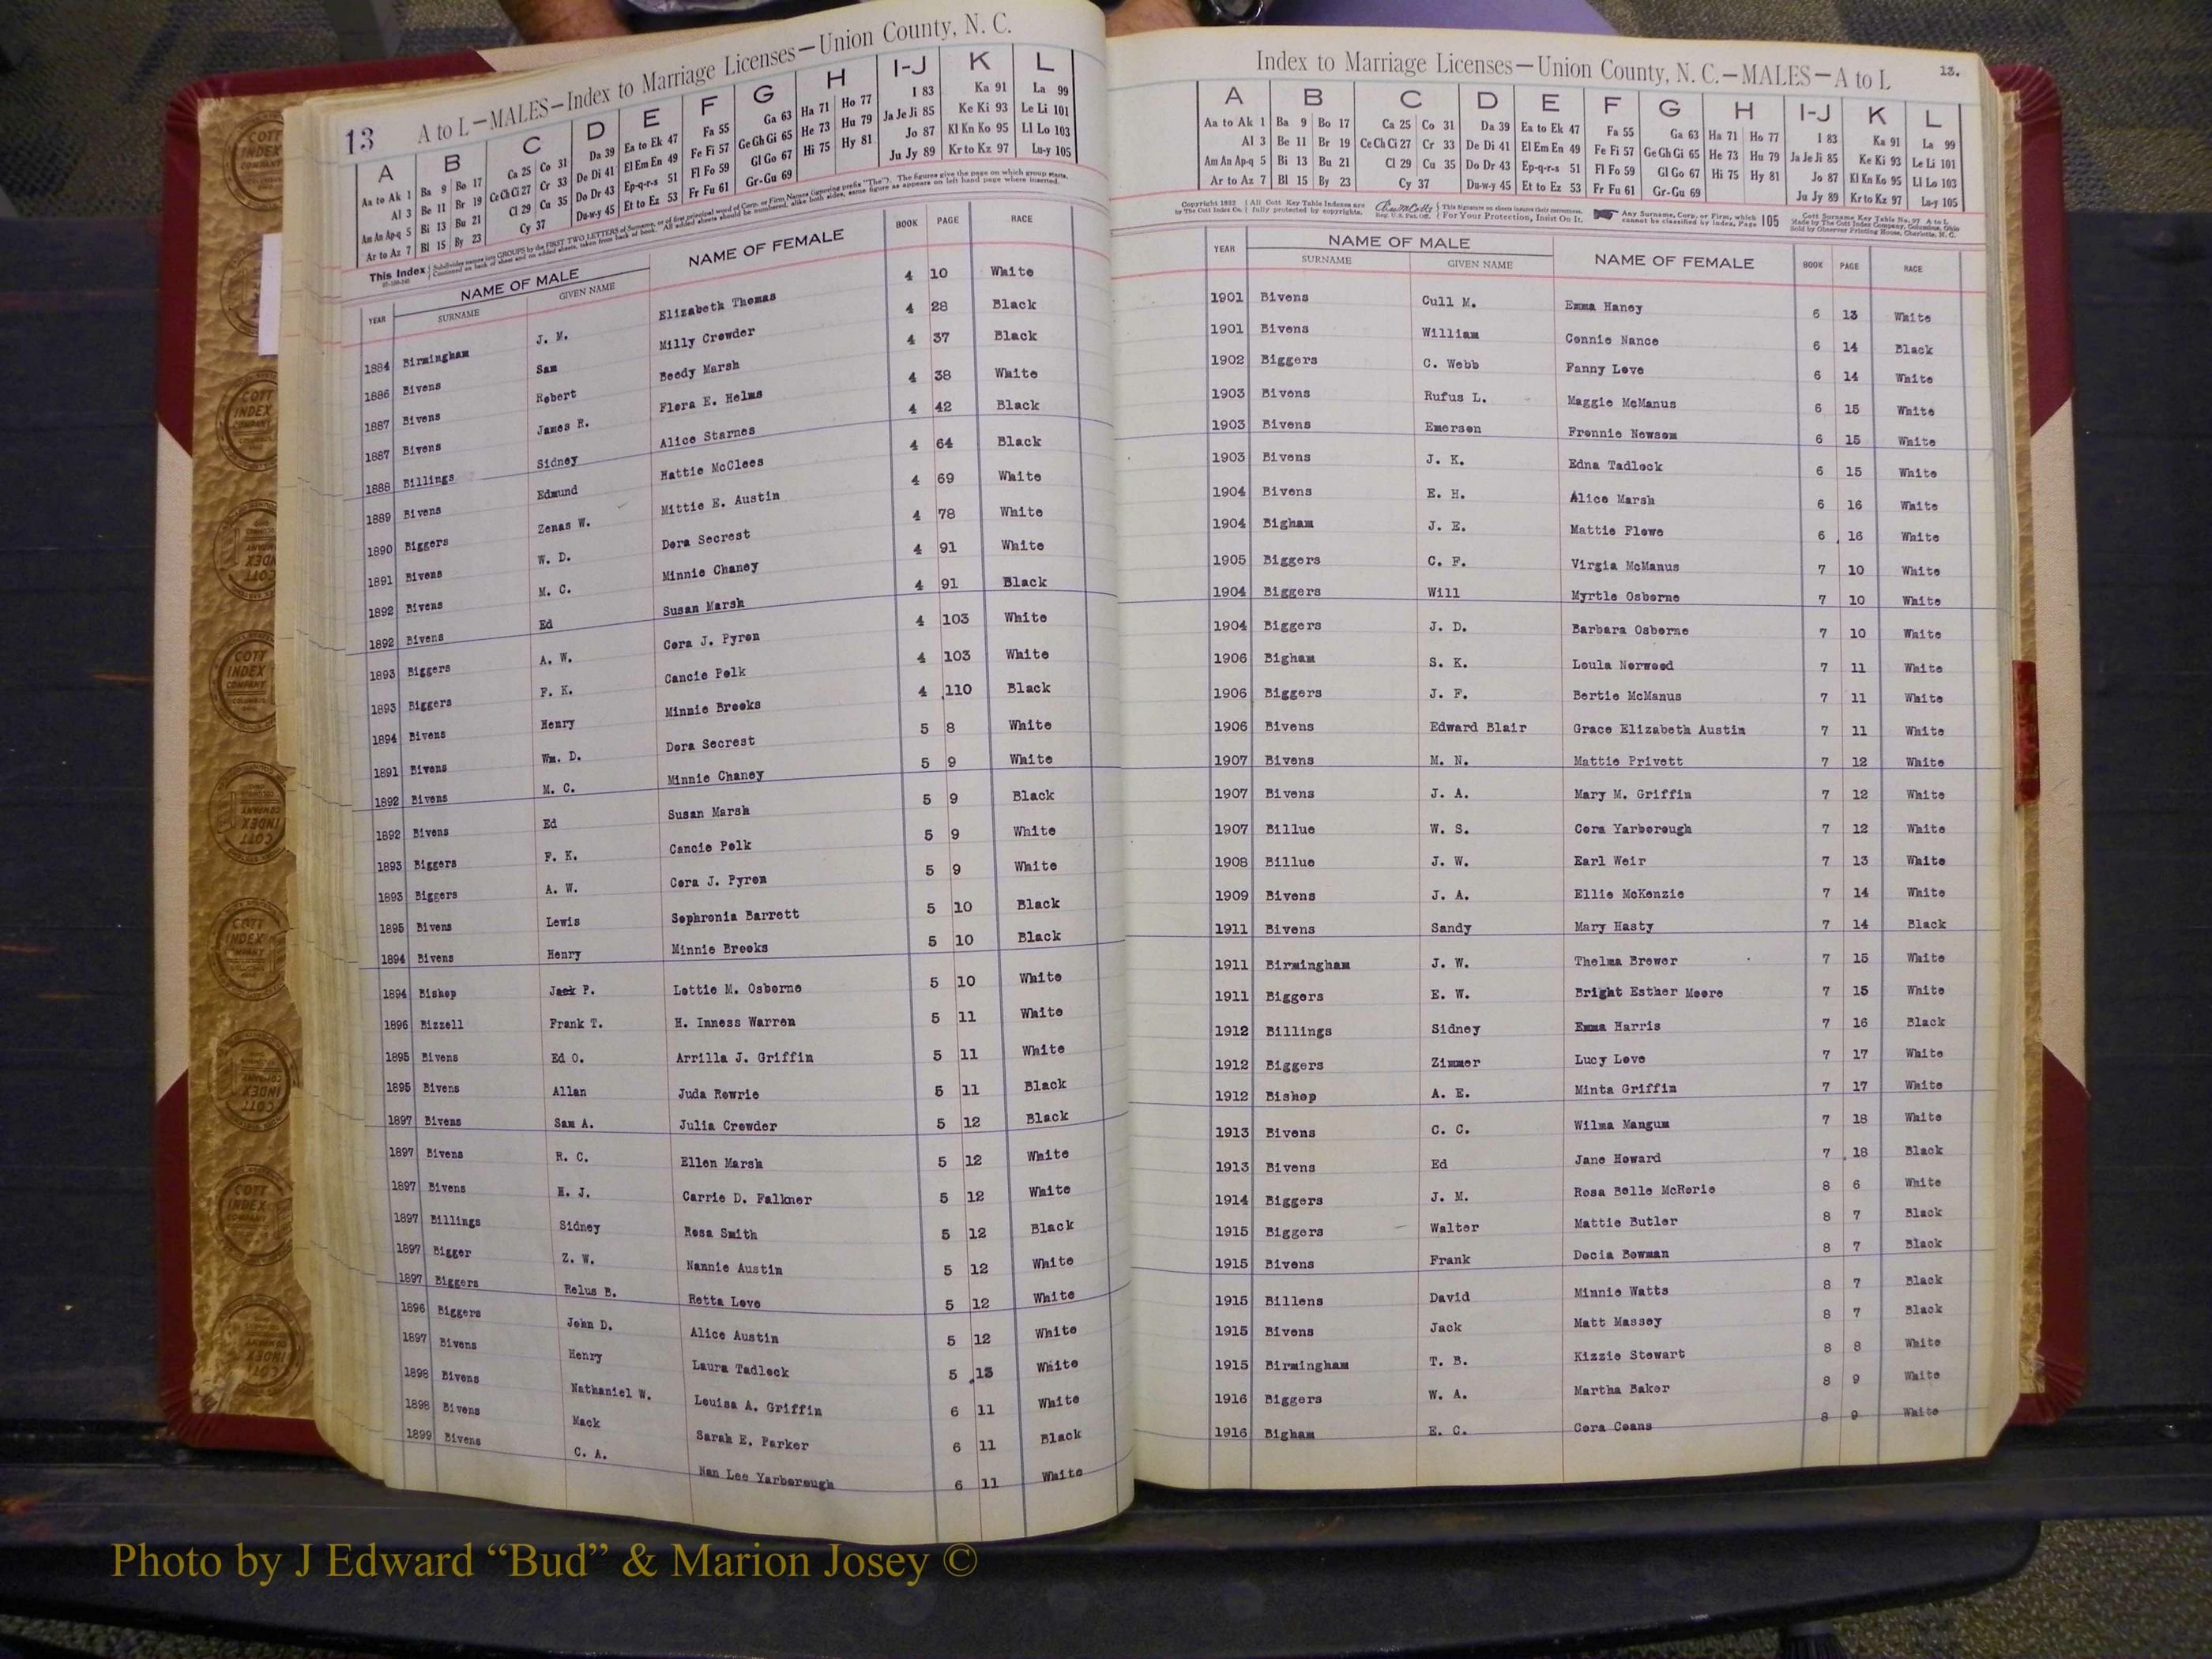 13 A to L—MALES—Index to Marriage Licenses—Union County, N. C.
A B C D E F G H I-J K L
Aa to Ak 1 Ba 9 Bo 17 Ca 25 Co 31 Da 39 Ea to Ek 47 Fa 55 Ga 63 Ha 71 Ho 77 I 83 Ka 91 La 99
Al 3 Be 11 Br 19 Ce Ch Ci 27 Cr 33 De Di 41 El Em En 49 Fe Fi 57 Ge Gh Gi 65 He 73 Hu 79 Ja Je Ji 85 Ke Ki 93 Le Li 101
Am An Ap-q 5 Bi 13 Bu 21 Cl 29 Cu 35 Do Dr 43 Ep-q-r-s 51 Fl Fo 59 Gl Go 67 Hi 75 Hy 81 Jo 87 Kl Kn Ko 95 Ll Lo 103
Ar to Az 7 Bl 15 By 23 Cy 37 Du-w-y 45 Et to Ez 53 Fr Fu 61 Gr-Gu 69 Ju Jy 89 Kr to Kz 97 Lu-y 105
This Index Subdivides names into GROUPS by the FIRST TWO LETTERS of Surname, or of first principal word of Corp. or Firm Names (ignoring prefix "The"). The figures give the page on which group starts.
Continued on back of sheet and on added sheets, taken from back of book. All added sheets should be numbered, alike both sides, same figure as appears on left hand page where inserted.
YEAR NAME OF MALE NAME OF FEMALE BOOK PAGE RACE
SURNAME GIVEN NAME
1884 Birmingham J. M. Elizabeth Thomas 4 10 White
1886 Bivens Sam Milly Crowder 4 28 Black
1887 Bivens Robert Beedy Marsh 4 37 Black
1887 Bivens James R. Flora E. Helms 4 38 White
1888 Billings Sidney Alice Starnes 4 42 Black
1889 Bivens Edmund Hattie McClees 4 64 Black
1890 Biggers Zenas W. Mittie E. Austin 4 69 White
1891 Bivens W. D. Dora Secrest 4 78 White
1892 Bivens M. C. Minnie Chaney 4 91 White
1892 Bivens Ed Susan Marsh 4 91 Black
1893 Biggers A. W. Cora J. Pyron 4 103 White
1893 Biggers F. K. Cancie Polk 4 103 White
1894 Bivens Henry Minnie Brooks 4 110 Black
1891 Bivens Wm. D. Dora Secrest 5 8 White
1892 Bivens M. C. Minnie Chaney 5 9 White
1892 Bivens Ed Susan Marsh 5 9 Black
1893 Biggers F. K. Cancie Polk 5 9 White
1893 Biggers A. W. Cora J. Pyron 5 9 White
1895 Bivens Lewis Sophronia Barrett 5 10 Black
1894 Bivens Henry Minnie Brooks 5 10 Black
1894 Bishop Jack P. Lottie M. Osborne 5 10 White
1896 Bizzell Frank T. H. Inness Warren 5 11 White
1895 Bivens Ed O. Arrilla J. Griffin 5 11 White
1895 Bivens Allan Juda Rowrie 5 11 Black
1897 Bivens Sam A. Julia Crowder 5 12 Black
1897 Bivens R. C. Ellen Marsh 5 12 White
1897 Bivens H. J. Carrie D. Falkner 5 12 White
1897 Billings Sidney Rosa Smith 5 12 Black
1897 Bigger Z. W. Nannie Austin 5 12 White
1897 Biggers Relus B. Retta Love 5 12 White
1896 Biggers John D. Alice Austin 5 12 White
1897 Bivens Henry Laura Tadlock 5 13 White
1898 Bivens Nathaniel W. Louisa A. Griffin 6 11 White
1898 Bivens Mack Sarah E. Parker 6 11 Black
1899 Bivens C. A. Nan Lee Yarborough 6 11 White
Index to Marriage Licenses—Union County, N. C.—MALES—A to L 13.
A B C D E F G H I-J K L
Aa to Ak 1 Ba 9 Bo 17 Ca 25 Co 31 Da 39 Ea to Ek 47 Fa 55 Ga 63 Ha 71 Ho 77 I 83 Ka 91 La 99
Al 3 Be 11 Br 19 Ce Ch Ci 27 Cr 33 De Di 41 El Em En 49 Fe Fi 57 Ge Gh Gi 65 He 73 Hu 79 Ja Je Ji 85 Ke Ki 93 Le Li 101
Am An Ap-q 5 Bi 13 Bu 21 Cl 29 Cu 35 Do Dr 43 Ep-q-r-s 51 Fl Fo 59 Gl Go 67 Hi 75 Hy 81 Jo 87 Kl Kn Ko 95 Ll Lo 103
Ar to Az 7 Bl 15 By 23 Cy 37 Du-w-y 45 Et to Ez 53 Fr Fu 61 Gr-Gu 69 Ju Jy 89 Kr to Kz 97 Lu-y 105
Copyright 1932 All Cott Key Table Indexes are This signature on sheets insures their correctness. Any Surname, Corp. or Firm, which 105 Cott Surname Key Table No. 97 A to L
by The Cott Index Co. fully protected by copyrights. Reg. U.S. Pat. Off. For Your Protection, Insist On It. cannot be classified by Index, Page Made by The Cott Index Company, Columbus, Ohio
Sold by Observer Printing House, Charlotte, N. C.
YEAR NAME OF MALE NAME OF FEMALE BOOK PAGE RACE
SURNAME GIVEN NAME
1901 Bivens Cull M. Emma Haney 6 13 White
1901 Bivens William Connie Nance 6 14 Black
1902 Biggers C. Webb Fanny Love 6 14 White
1903 Bivens Rufus L. Maggie McManus 6 15 White
1903 Bivens Emerson Fronnie Newsom 6 15 White
1903 Bivens J. K. Edna Tadlock 6 15 White
1904 Bivens E. H. Alice Marsh 6 16 White
1904 Bigham J. E. Mattie Flowe 6 16 White
1905 Biggers C. F. Virgia McManus 7 10 White
1904 Biggers Will Myrtle Osborne 7 10 White
1904 Biggers J. D. Barbara Osborne 7 10 White
1906 Bigham S. K. Loula Norwood 7 11 White
1906 Biggers J. F. Bertie McManus 7 11 White
1906 Bivens Edward Blair Grace Elizabeth Austin 7 11 White
1907 Bivens M. N. Mattie Privett 7 12 White
1907 Bivens J. A. Mary M. Griffin 7 12 White
1907 Billue W. S. Cora Yarborough 7 12 White
1908 Billue J. W. Earl Weir 7 13 White
1909 Bivens J. A. Ellie McKenzie 7 14 White
1911 Bivens Sandy Mary Hasty 7 14 Black
1911 Birmingham J. W. Thelma Brewer 7 15 White
1911 Biggers E. W. Bright Esther Moore 7 15 White
1912 Billings Sidney Emma Harris 7 16 Black
1912 Biggers Zimmer Lucy Love 7 17 White
1912 Bishop A. E. Minta Griffin 7 17 White
1913 Bivens C. C. Wilma Mangum 7 18 White
1913 Bivens Ed Jane Howard 7 18 Black
1914 Biggers J. M. Rosa Belle McRorie 8 6 White
1915 Biggers Walter Mattie Butler 8 7 Black
1915 Bivens Frank Docia Bowman 8 7 Black
1915 Billens David Minnie Watts 8 7 Black
1915 Bivens Jack Matt Massey 8 7 Black
1915 Birmingham T. B. Kizzie Stewart 8 8 White
1916 Biggers W. A. Martha Baker 8 9 White
1916 Bigham E. C. Cora Coans 8 9 White
Photo by J Edward “Bud” & Marion Josey ©